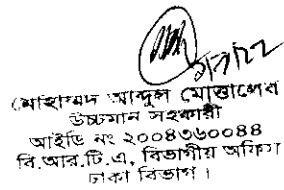 ৩/৭/২২
মোহাম্মদ আব্দুল মোত্তালেব
উচ্চমান সহকারী
আইডি নং ২০০৪৩৬০০৪৪
বি.আর.টি.এ, বিভাগীয় অফিস
ঢাকা বিভাগ।